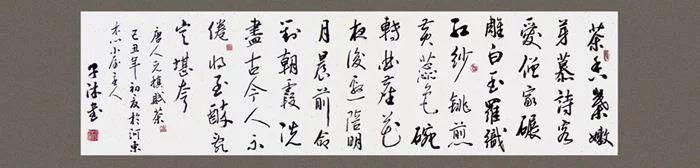 茶香葉嫩
芽慕詩客
愛僧家碾
雕白玉羅織
紅紗銚煎
黃蕊色碗
轉曲塵花
夜後邀陪明
月晨前命
對朝霞洗
盡古今人不
倦將至醉亂
豈堪夸
唐人元稹賦茶
己丑年初夏於河東
小屋主人
子書